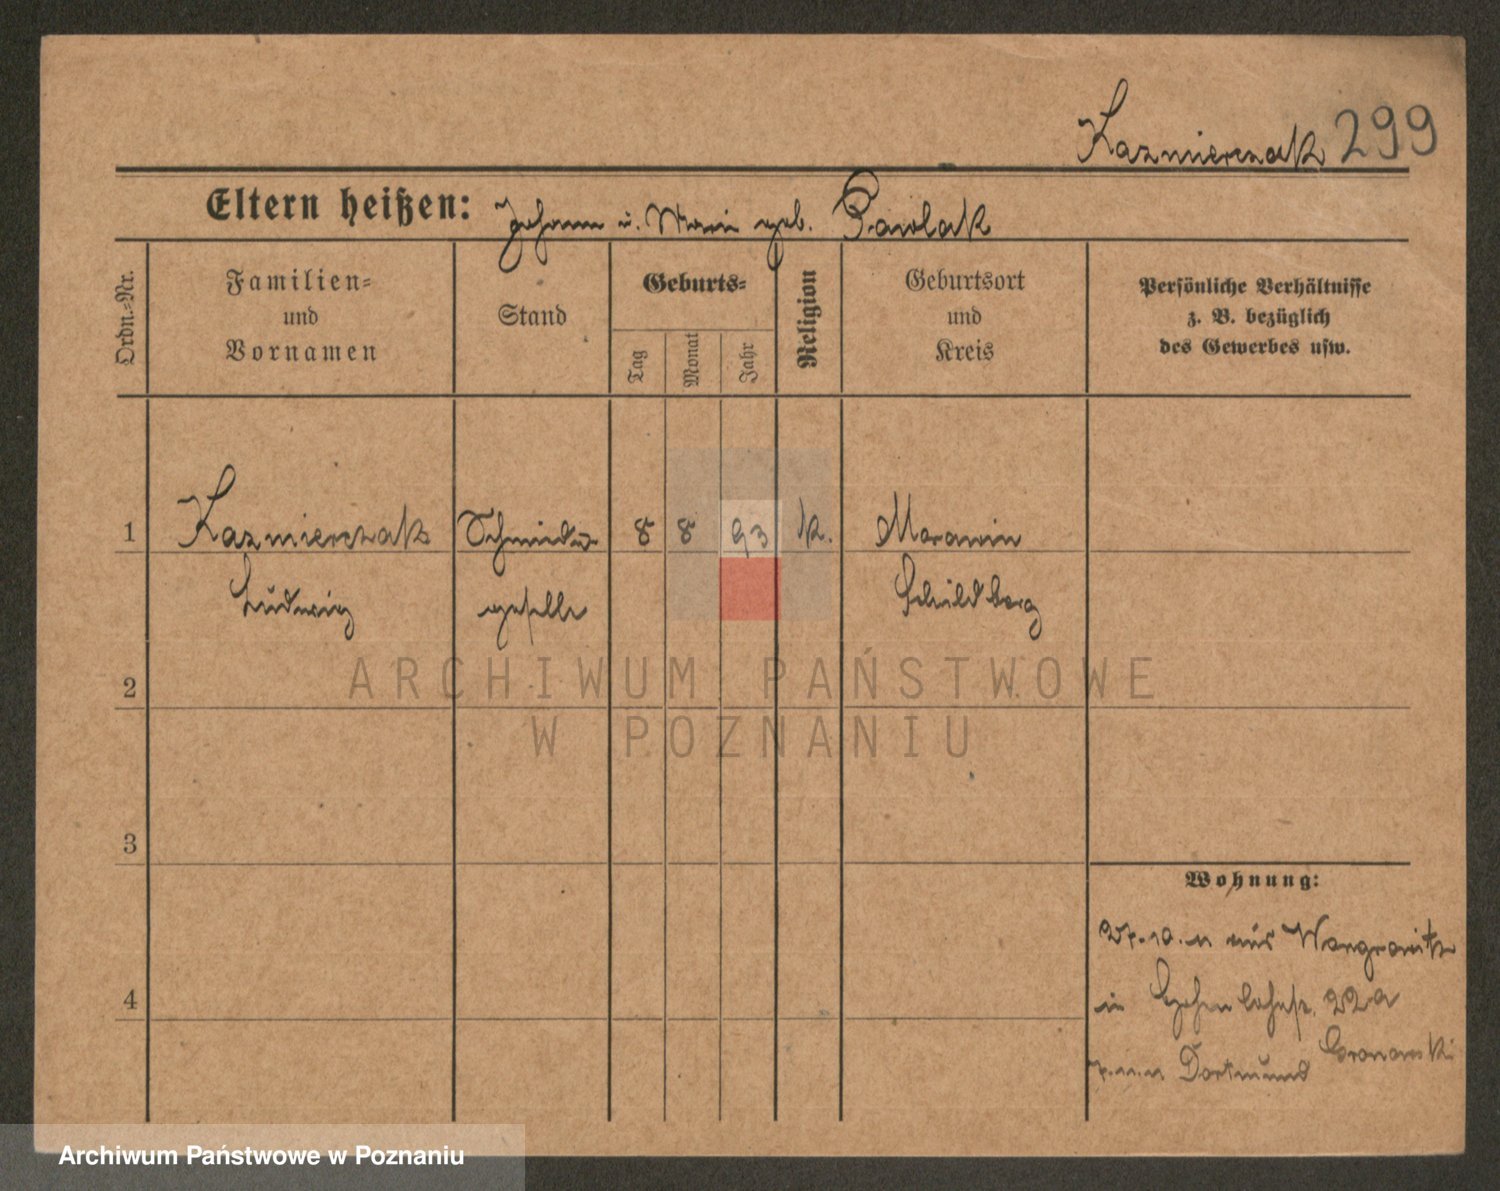 Kazmierczak 299
Eltern heißen: Johann u. Marie geb. Pawlak
Ordn.=Nr.
Familien=
und
Vornamen
Stand
Geburts=
Tag
Monat
Jahr
Religion
Geburtsort
und
Kreis
Persönliche Verhältnisse
z. B. bezüglich
des Gewerbes usw.
1 Kazmierczak Schmiede 8 8 93 k. Morawin
Ludwig geselle Schildberg
2
3
4
Wohnung:
27.10.11 aus Wongrowitz
in Hohenlohestr. 22a
Gronowski
7.11.11 Dortmund
ARCHIWUM PAŃSTWOWE
W POZNANIU
Archiwum Państwowe w Poznaniu